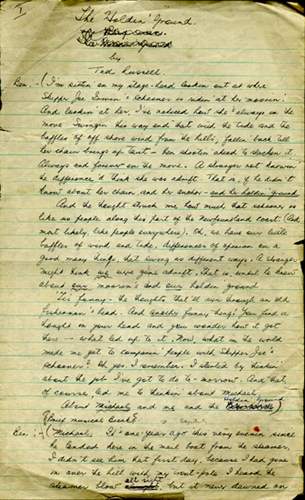 I
The "Holdin' Ground"
by
Ted Russell
Ben:- (I'm sittin on my stage-head lookin out at where
Skipper Joe Irwin's schooner is ridin at her moorin'.
And lookin at her, I've noticed how she's always on the
move. Swingin this way and that with the tide and the
baffles of off shore wind from the hills, fallin back till
her chain brings up taut & then shootin ahead to slacken it.
Always and forever on the move. A stranger not knowin
the difference'd think she was adrift. That is, if he didn't
know about her chain, and her anchor - and her holdin' ground.
And the thought struck me how much that schooner is
like us people along this part of the Newfoundland coast. (And
most likely, like people everywhere). Oh, we have our little
baffles of wind and tide, differences of opinion on a
good many things, that swing us different ways. A stranger
might think we were gone adrift. That is, unless he knew
about our moorin's and our holdin ground
'Tis funny - the thoughts that'll run through an old
fisherman's head. And another funny thing: You find a
thought in your head and you wonder how it got
here - what led up to it. Now, what in the world
made me get to comparin' people with Skipper Joe's
schooner? Oh yes. I remember. I started by thinkin
about the job I've got to do to-morrow. And that,
of course, led me to thinkin about Michael.
About Michael and me and the Holdin Ground
(Brief musical break)
Ben:- (Michael. It's one year ago this very evenin since
he landed here in the mail boat from the steamer.
I didn't see him that first day, because I had gone
in over the hill with my nunt-pole. I heard the
steamer blow all right but it never dawned on